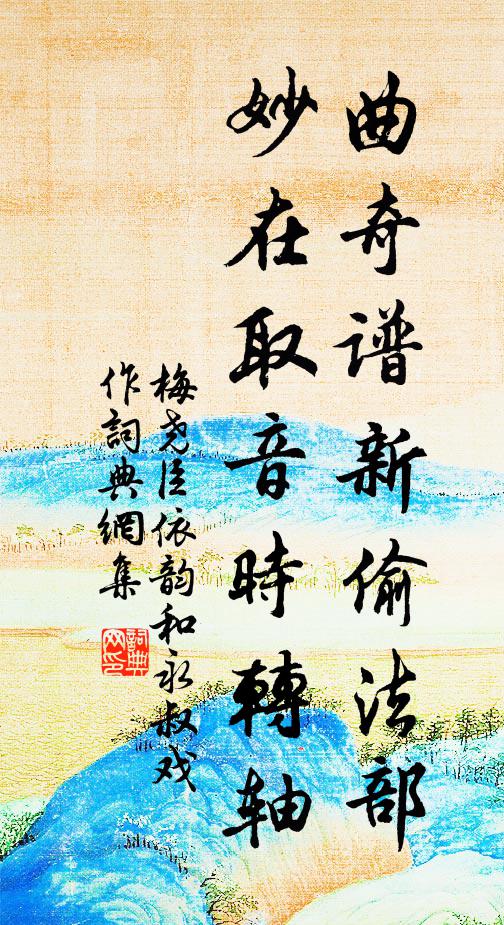 曲奇谱新偷法部
妙在取音時轉轴
梅尧臣依韵和永叔戏
作詞典網集
詞典网印